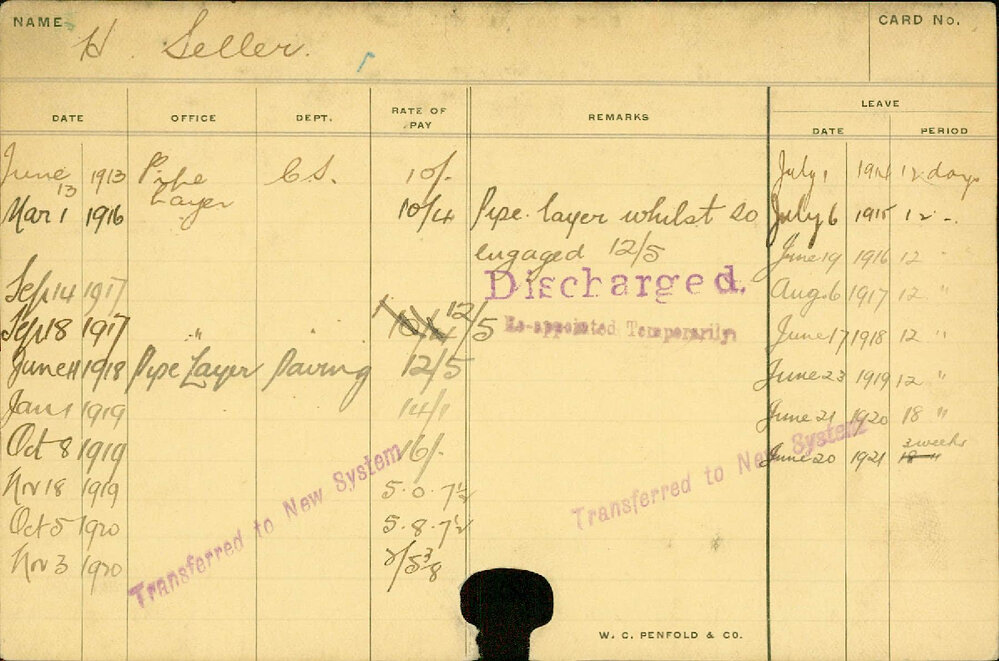 NAME H. Seller. CARD No.
DATE OFFICE DEPT. RATE OF PAY REMARKS LEAVE
DATE PERIOD
June 13 1913 Pipe Layer C.S. 10/- July 1 1914 12 days
Mar 1 1916 10/4 Pipe layer whilst so July 6 1915 12 -.
engaged 12/5 June 19 1916 12 "
Sep 14 1917 Discharged. Aug. 6 1917 12 "
Sep 18 1917 " 10/4 12/5 Re-appointed Temporarily. June 17 1918 12 "
June 11 1918 Pipe Layer Paving 12/5 June 23 1919 12 "
Jan 1 1919 14/1 June 21 1920 18 "
Oct 8 1919 16/- June 20 1921 18 " 3 weeks
Nov 18 1919 5.0.7½
Oct 5 1920 5.8.7½
Nov 3 1920 2/5 3/8
Transferred to New System
Transferred to New System
W. C. PENFOLD & CO.